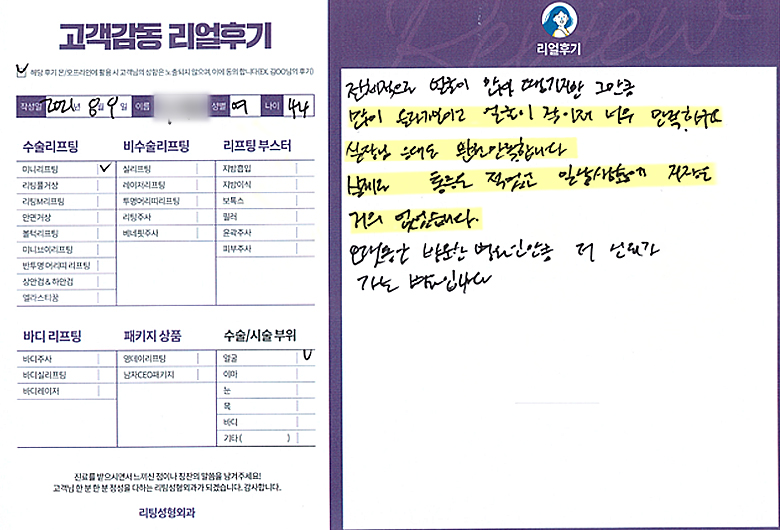 고객감동 리얼후기
해당 후기 온/오프라인에 활용 시 고객님의 성함은 노출되지 않으며, 이에 동의 합니다(EX. 김OO님의 후기)
작성일 2021년 8월 9일 이름 성별 여 나이 44
수술리프팅
미니리프팅
리팅풀거상
리팅M리프팅
안면거상
볼턱리프팅
미니브이리프팅
반투명 머리띠 리프팅
상안검 & 하안검
엘라스티꿈
비수술리프팅
실리프팅
레이저리프팅
투명머리띠리프팅
리팅주사
베네핏주사
리프팅 부스터
지방흡입
지방이식
보톡스
필러
윤곽주사
피부주사
바디 리프팅
바디주사
바디실리프팅
바디레이저
패키지 상품
영데이리프팅
남자CEO패키지
수술/시술 부위
얼굴
이마
눈
목
바디
기타 ( )
진료를 받으시면서 느끼신 점이나 칭찬의 말씀을 남겨주세요!
고객님 한 분 한 분 정성을 다하는 리팅성형외과가 되겠습니다. 감사합니다.
리팅성형외과
리얼후기
전체적으로 얼굴이 그만큼
많이 올라가보이고 얼굴이 작아져 너무 만족하구요
실장님 응대도 만족합니다
실제로 통증도 적었고 일상생활에 지장도
거의 없었습니다.
오랫동안 방문한 병원인만큼 더 신뢰가
가는 병원입니다